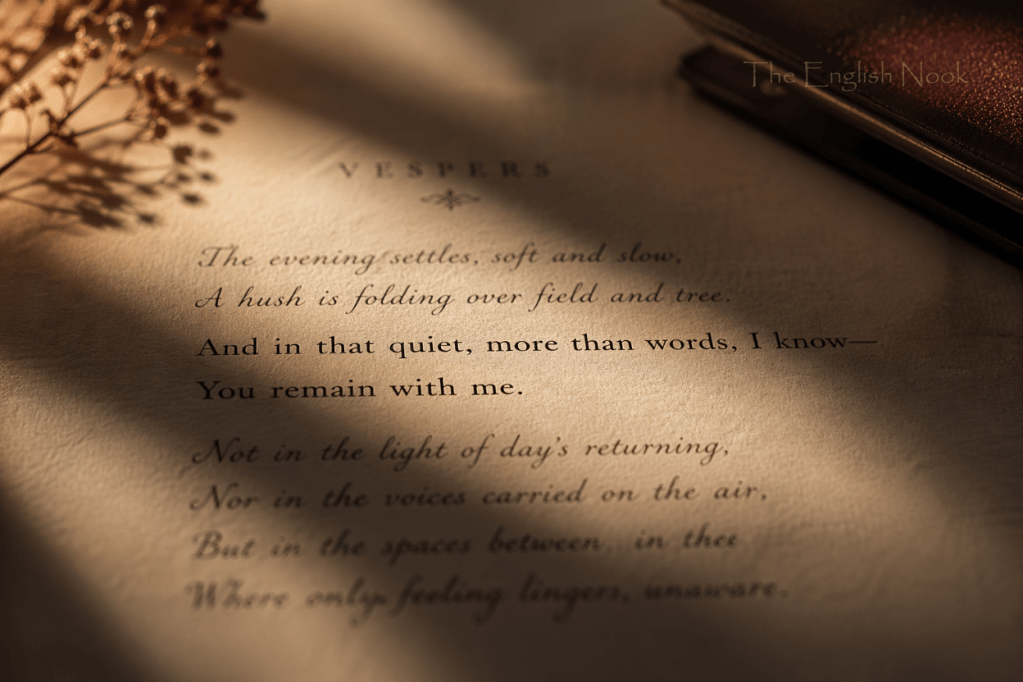 The English Nook
VESPERS
The evening settles, soft and slow,
A hush is folding over field and tree.
And in that quiet, more than words, I know—
You remain with me.
Not in the light of day's returning,
Nor in the voices carried on the air,
But in the spaces between, in thee
Where only feeling lingers, unaware.